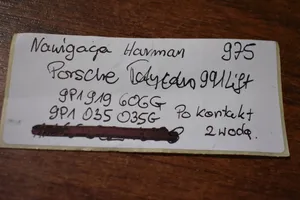 Nawigacja Harman 975
Porsche 991 Lift
9P1 919 606G
9P1 035 035G Po kontakt
z wodą.